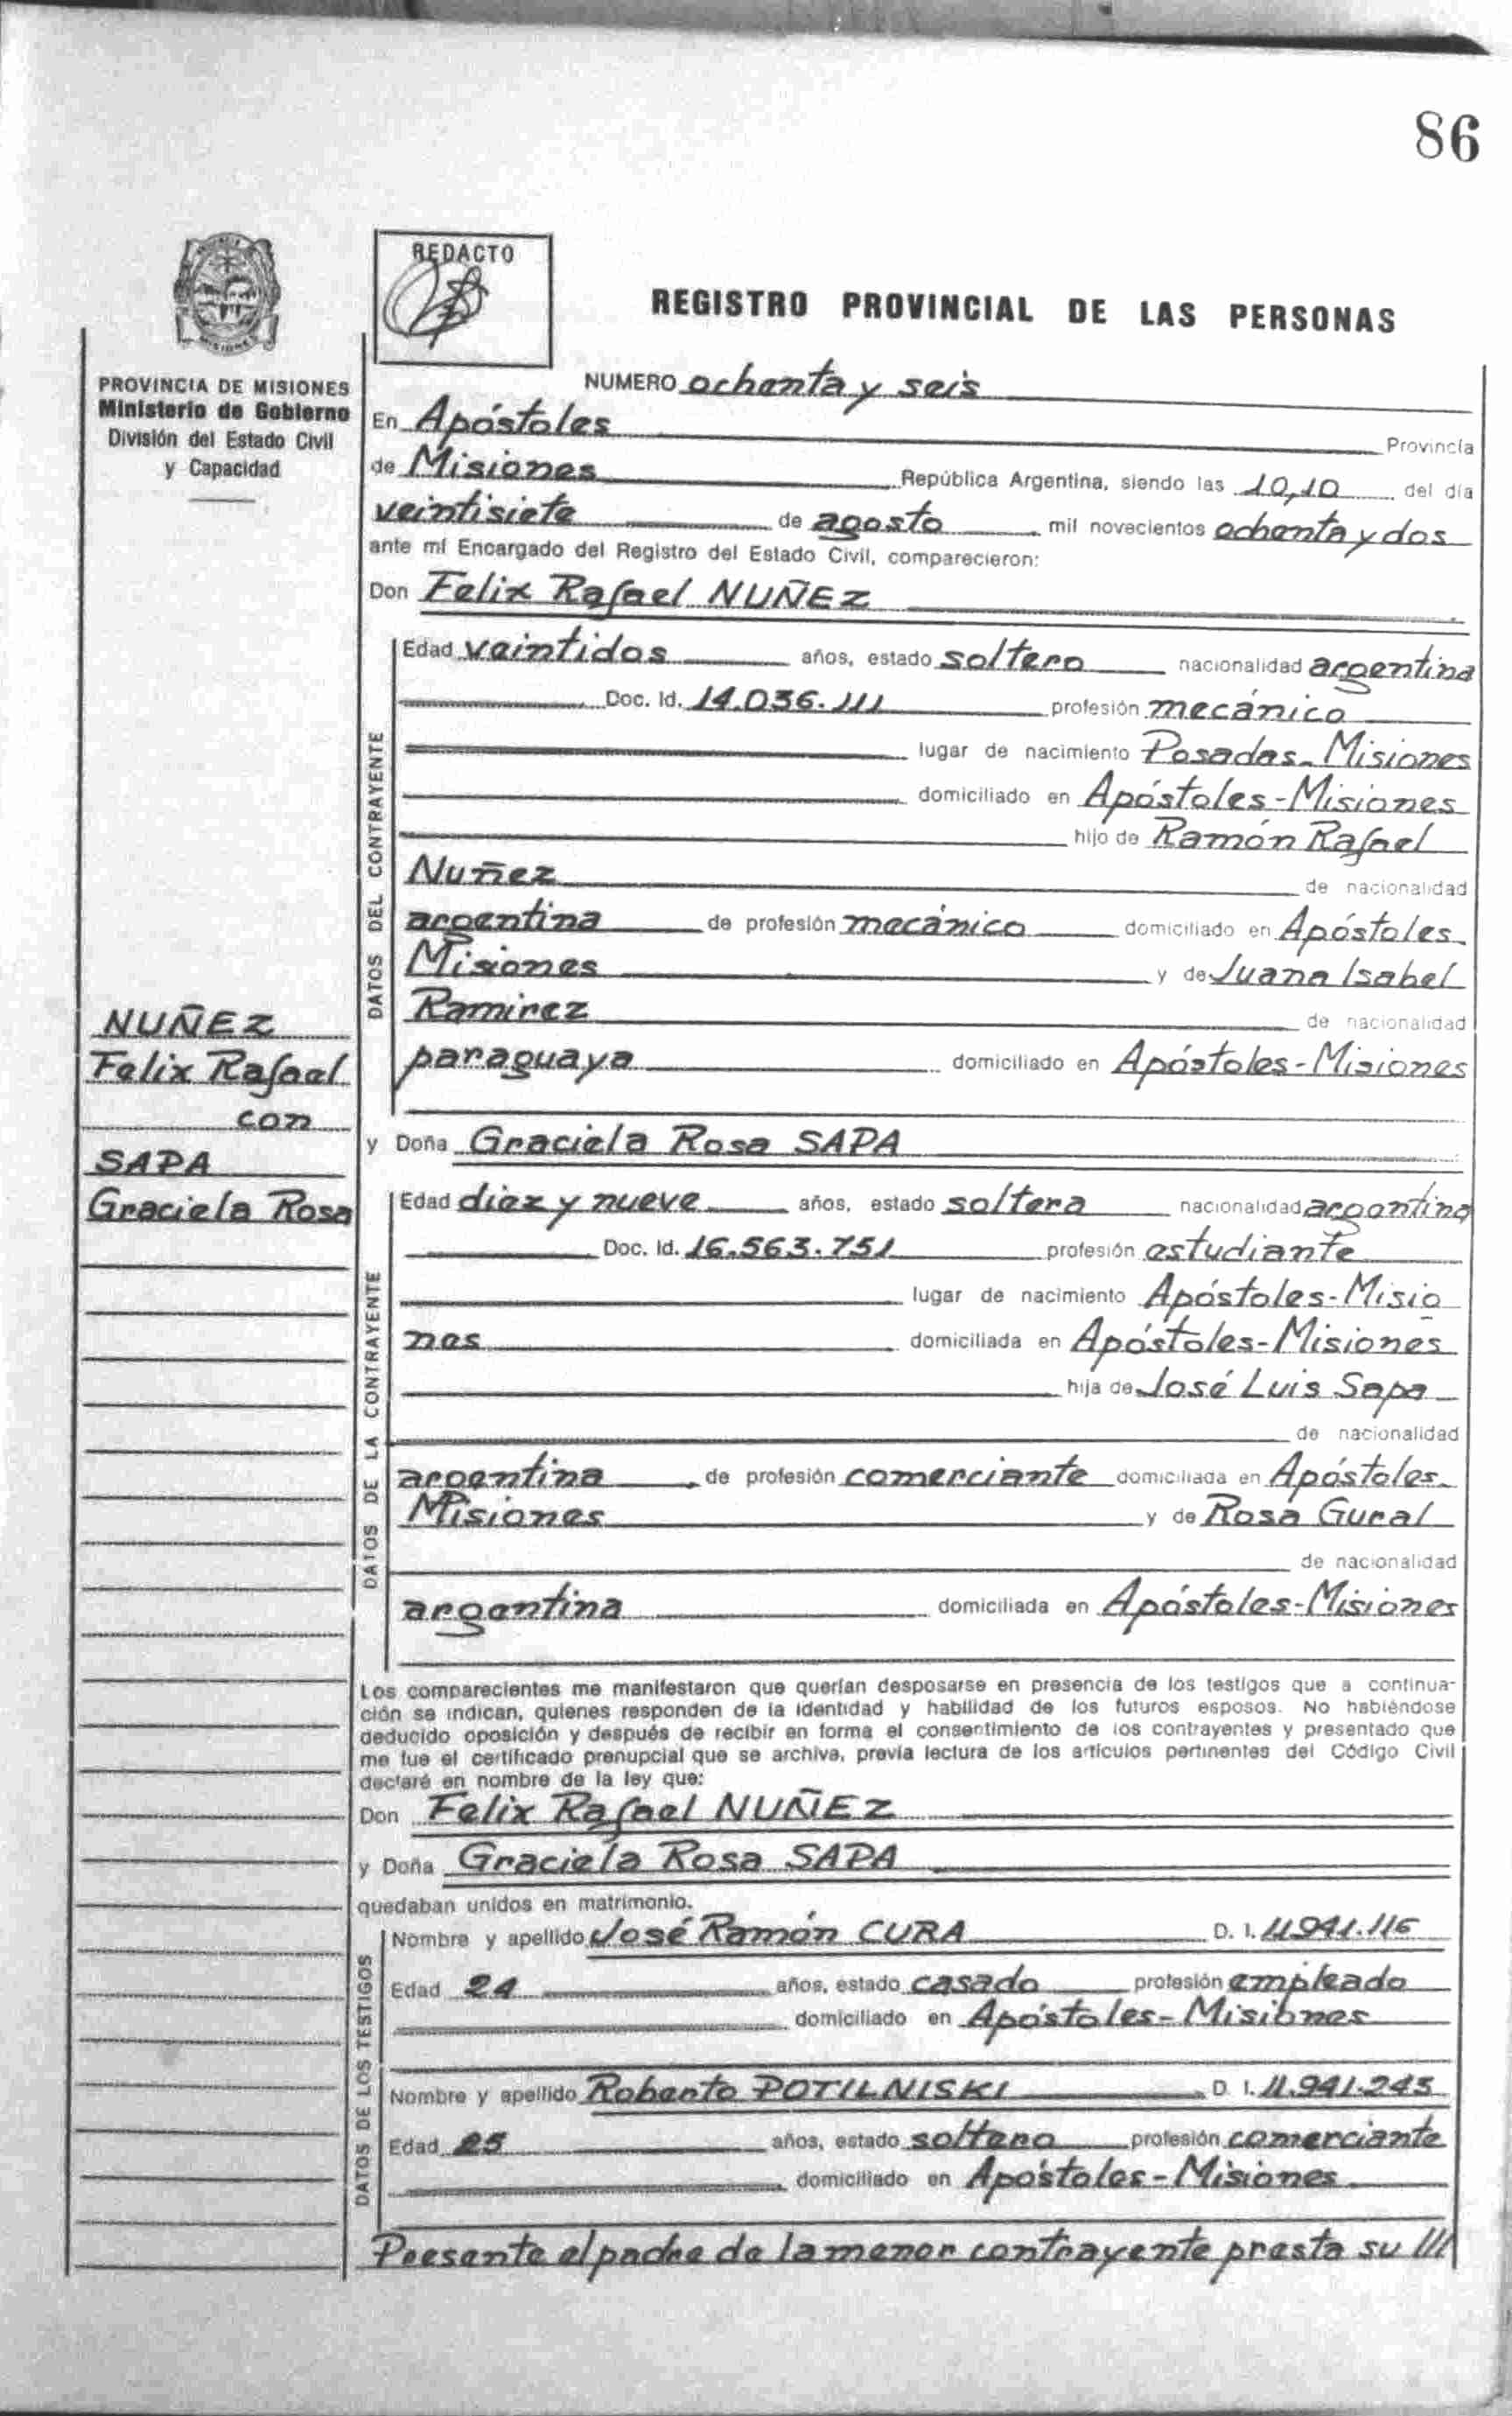 86
REDACTO
REGISTRO PROVINCIAL DE LAS PERSONAS
PROVINCIA DE MISIONES
Ministerio de Gobierno
División del Estado Civil
y Capacidad
NUMERO ochenta y seis
En Apóstoles Provincia
de Misiones República Argentina, siendo las 10,10 del día
veintisiete de agosto mil novecientos ochenta y dos
ante mí Encargado del Registro del Estado Civil, comparecieron:
Don Felix Rafael NUÑEZ
DATOS DEL CONTRAYENTE
Edad veintidos años, estado soltero nacionalidad argentina
Doc. Id. 14.036.111 profesión mecánico
lugar de nacimiento Posadas-Misiones
domiciliado en Apóstoles-Misiones
hijo de Ramón Rafael
Nuñez de nacionalidad
argentina de profesión mecánico domiciliado en Apóstoles-
Misiones y de Juana Isabel
Ramirez de nacionalidad
paraguaya domiciliado en Apóstoles-Misiones
NUÑEZ
Felix Rafael
con
SAPA
Graciela Rosa
y Doña Graciela Rosa SAPA
DATOS DE LA CONTRAYENTE
Edad diez y nueve años, estado soltera nacionalidad argentina
Doc. Id. 16.563.751 profesión estudiante
lugar de nacimiento Apóstoles-Misio
nes domiciliada en Apóstoles-Misiones
hija de José Luis Sapa
de nacionalidad
argentina de profesión comerciante domiciliada en Apóstoles-
Misiones y de Rosa Gural
de nacionalidad
argentina domiciliada en Apóstoles-Misiones
Los comparecientes me manifestaron que querían desposarse en presencia de los testigos que a continua-
ción se indican, quienes responden de la identidad y habilidad de los futuros esposos. No habiéndose
deducido oposición y después de recibir en forma el consentimiento de los contrayentes y presentado que
me fue el certificado prenupcial que se archiva, previa lectura de los artículos pertinentes del Código Civil
declaré en nombre de la ley que:
Don Felix Rafael NUÑEZ
y Doña Graciela Rosa SAPA
quedaban unidos en matrimonio.
DATOS DE LOS TESTIGOS
Nombre y apellido José Ramón CURA D. I. 11.941.116
Edad 24 años, estado casado profesión empleado
domiciliado en Apóstoles-Misiones
Nombre y apellido Roberto POTILNISKI D. I. 11.941.245
Edad 25 años, estado soltero profesión comerciante
domiciliado en Apóstoles-Misiones
Presente el padre de la menor contrayente presta su ///